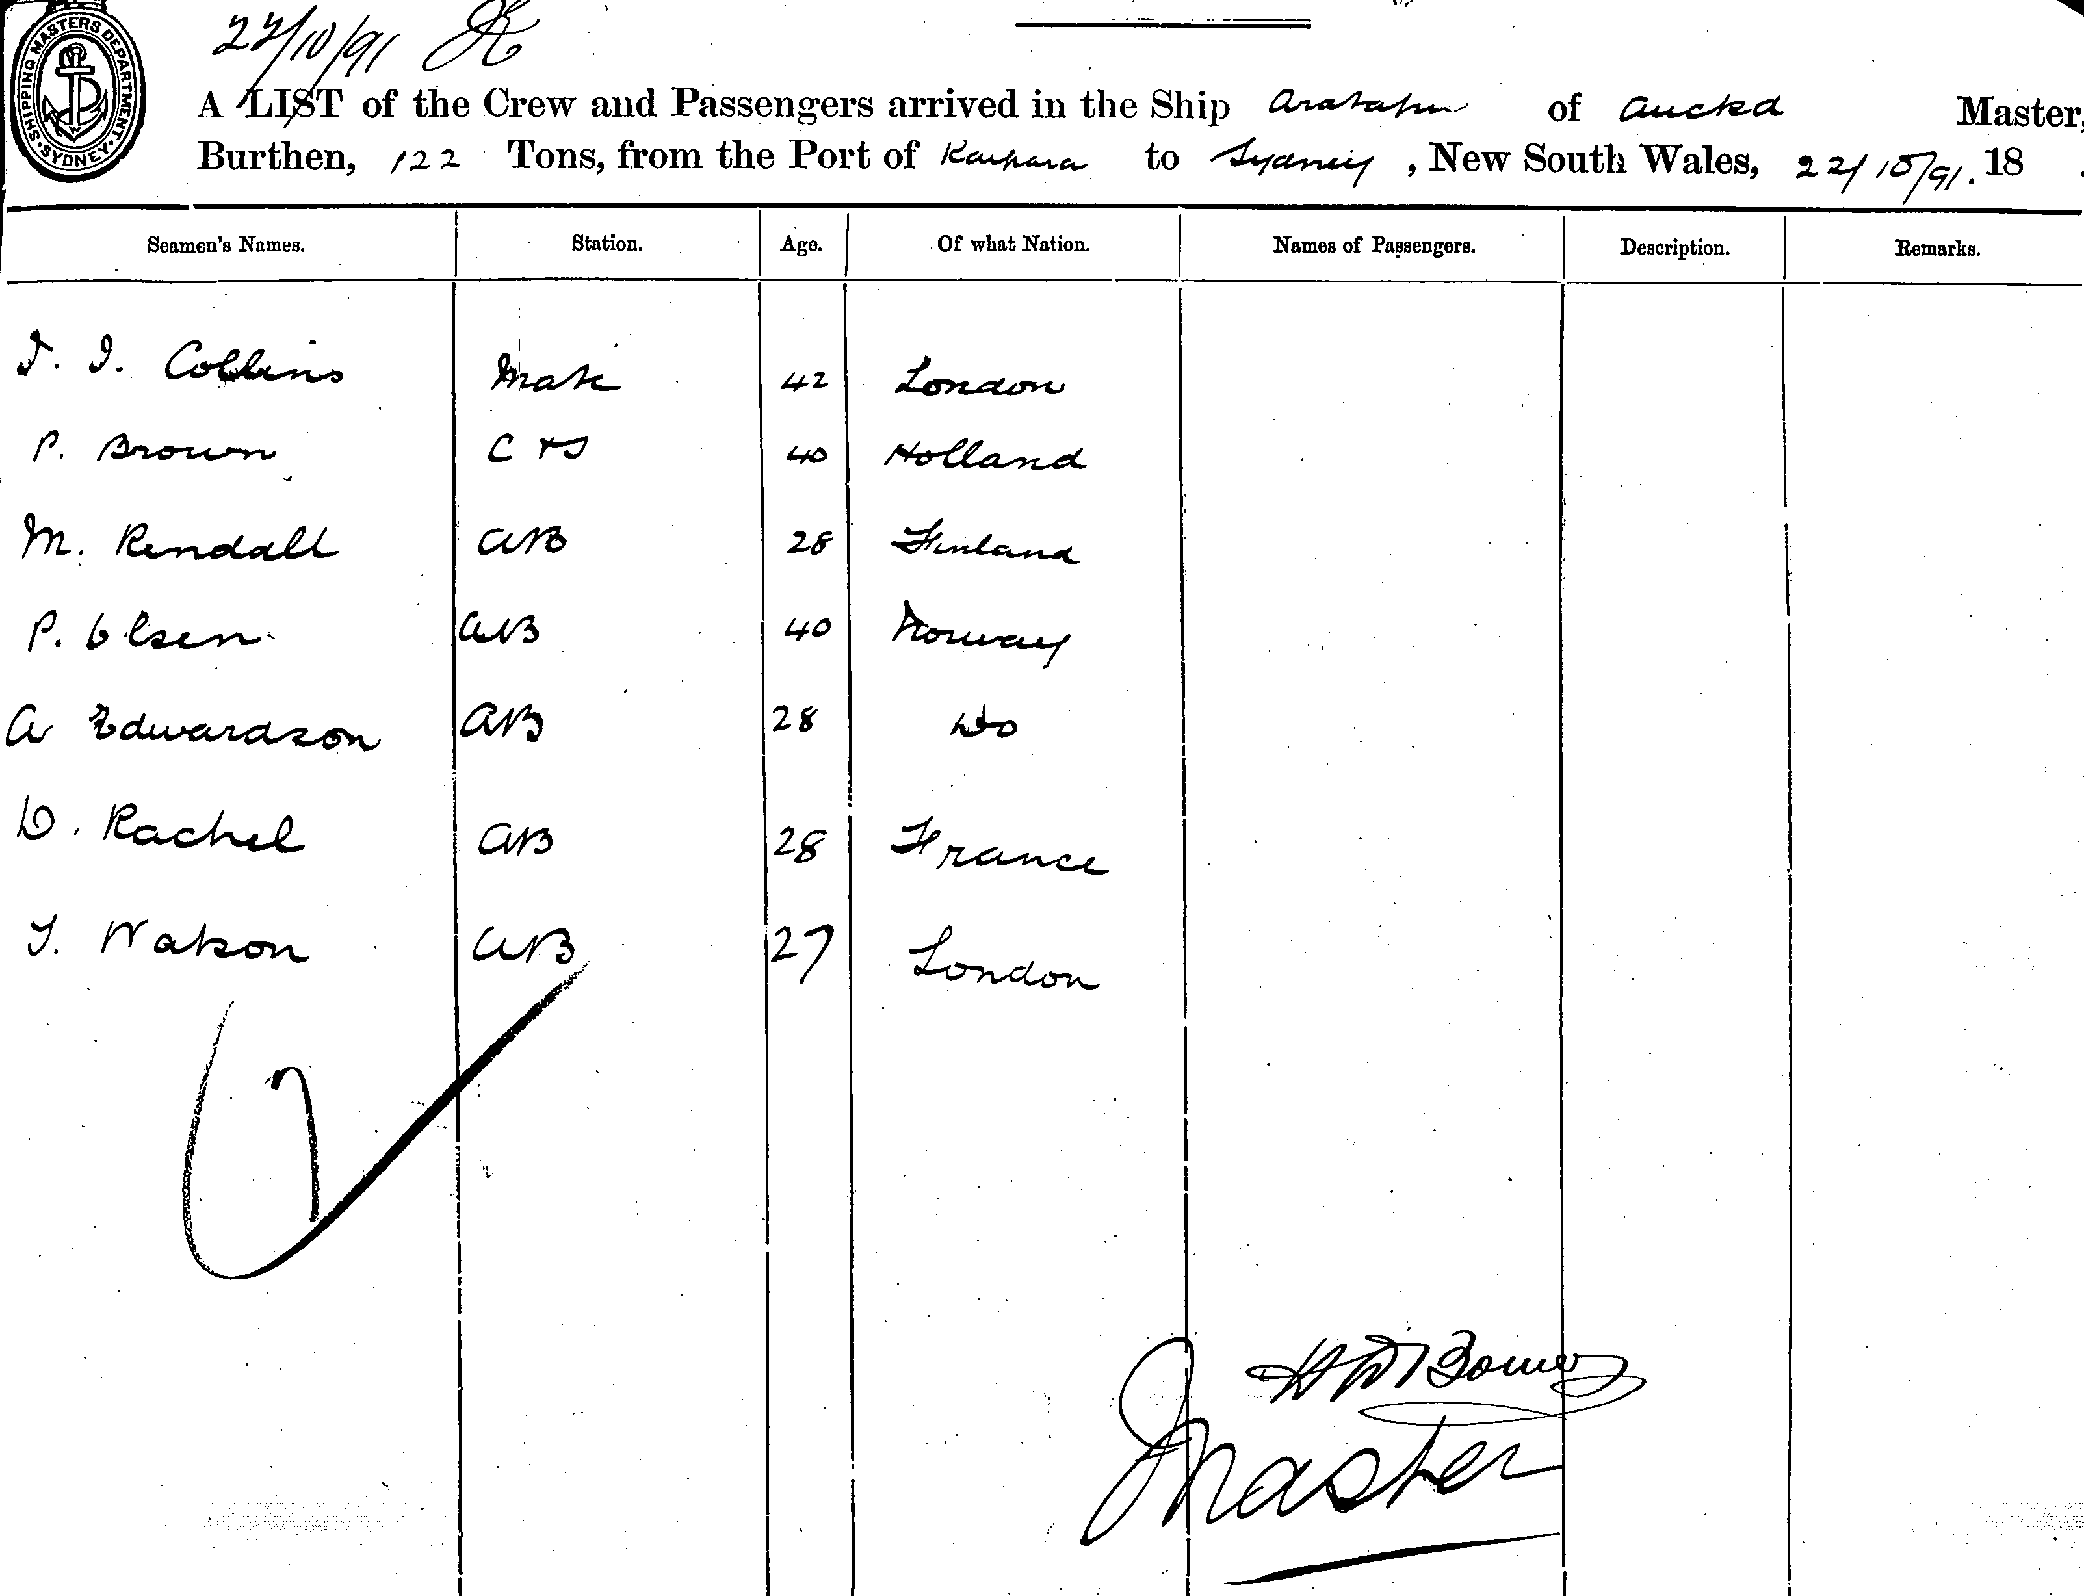 SHIPPING MASTERS DEPARTMENT SYDNEY
22/10/91
A LIST of the Crew and Passengers arrived in the Ship of Auckd Master,
Burthen, 122 Tons, from the Port of Kaipara to Sydney, New South Wales, 22/10/91. 18
Seamen's Names. Station. Age. Of what Nation. Names of Passengers. Description. Remarks.
Collins Mate 42 London
P. Brown C & S 40 Holland
M. Rendall AB 28 Finland
P. Olsen AB 40 Norway
A Edwardson AB 28 Do
D. Rachel AB 28 France
Watson AB 27 London
7
Master